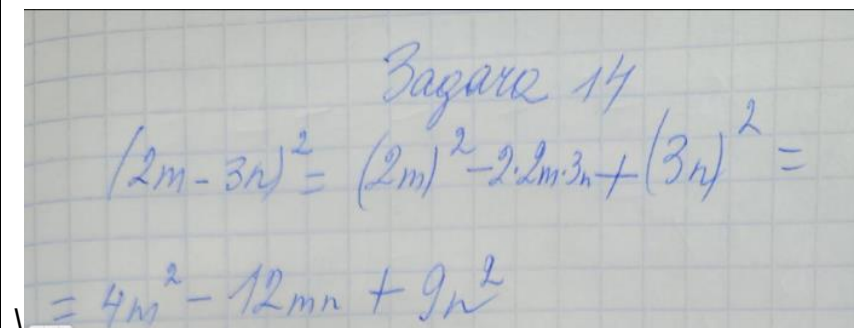 Задача 14
(2m - 3n)² = (2m)² - 2·2m·3n + (3n)² =
= 4m² - 12mn + 9n²